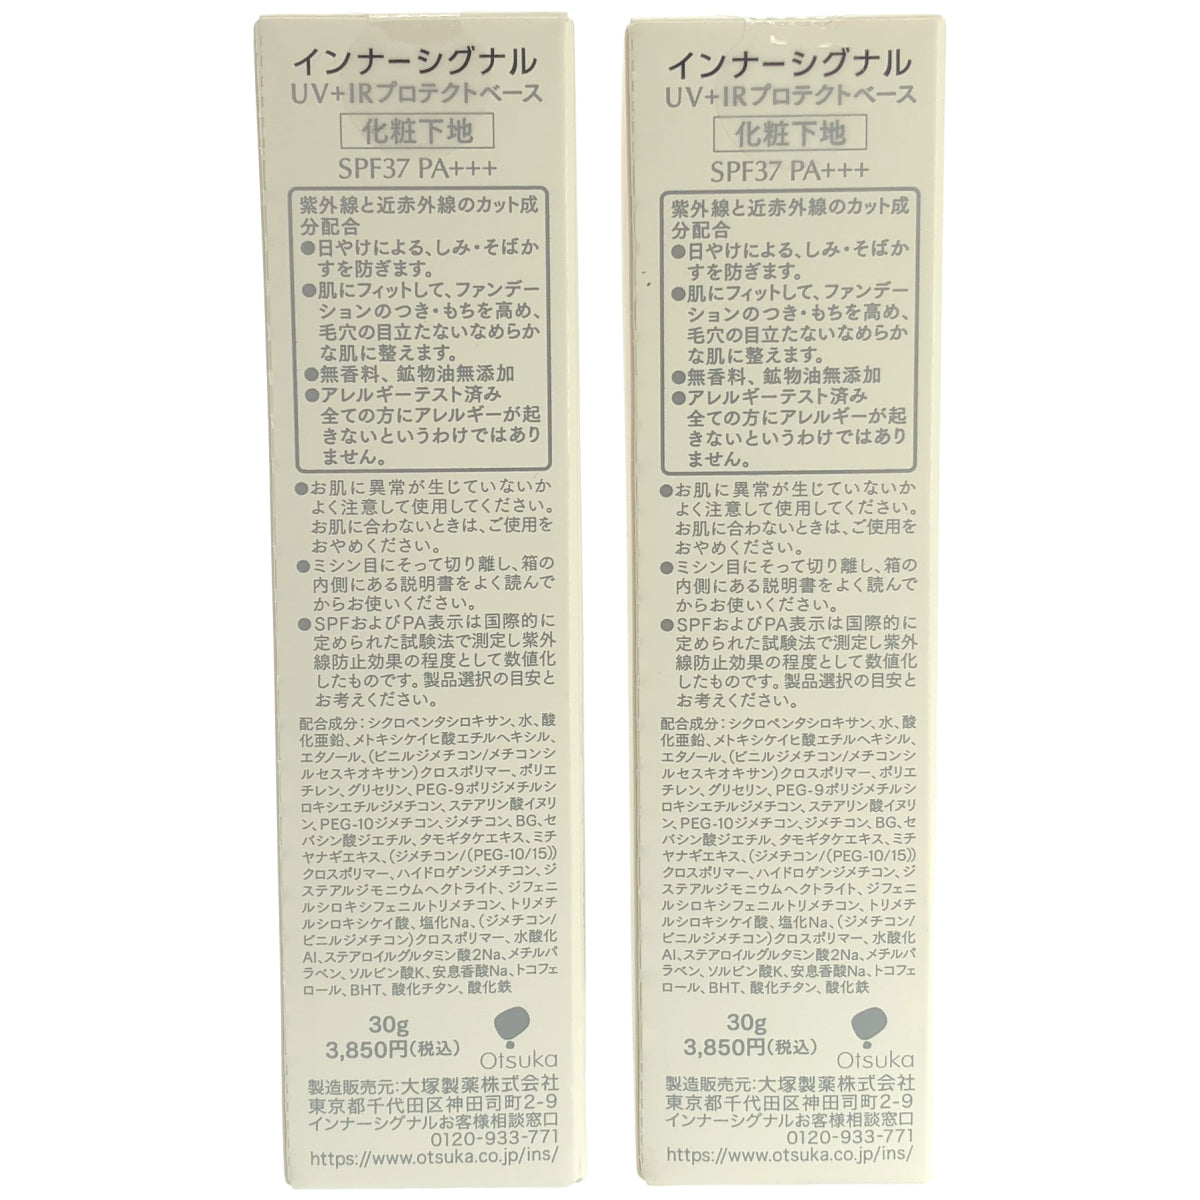 インナーシグナル
UV+IRプロテクトベース
化粧下地
SPF37 PA+++
紫外線と近赤外線のカット成
分配合
●日やけによる、しみ・そばか
すを防ぎます。
●肌にフィットして、ファンデー
ションのつき・もちを高め、
毛穴の目立たないなめらか
な肌に整えます。
●無香料、鉱物油無添加
●アレルギーテスト済み
全ての方にアレルギーが起
きないというわけではあり
ません。
●お肌に異常が生じていないか
よく注意して使用してください。
お肌に合わないときは、ご使用を
おやめください。
●ミシン目にそって切り離し、箱の
内側にある説明書をよく読んで
からお使いください。
●SPFおよびPA表示は国際的に
定められた試験法で測定し紫外
線防止効果の程度として数値化
したものです。製品選択の目安と
お考えください。
配合成分：シクロペンタシロキサン、水、酸
化亜鉛、メトキシケイヒ酸エチルヘキシル、
エタノール、(ビニルジメチコン/メチコンシ
ルセスキオキサン)クロスポリマー、ポリエ
チレン、グリセリン、PEG-9ポリジメチルシ
ロキシエチルジメチコン、ステアリン酸イヌリ
ン、PEG-10ジメチコン、ジメチコン、BG、セ
バシン酸ジエチル、タモギタケエキス、ミチ
ヤナギエキス、(ジメチコン/(PEG-10/15))
クロスポリマー、ハイドロゲンジメチコン、ジ
ステアルジモニウムヘクトライト、ジフェニ
ルシロキシフェニルトリメチコン、トリメチ
ルシロキシケイ酸、塩化Na、(ジメチコン/
ビニルジメチコン)クロスポリマー、水酸化
Al、ステアロイルグルタミン酸2Na、メチルパ
ラベン、ソルビン酸K、安息香酸Na、トコフェ
ロール、BHT、酸化チタン、酸化鉄
30g
3,850円(税込)
Otsuka
製造販売元:大塚製薬株式会社
東京都千代田区神田司町2-9
インナーシグナルお客様相談窓口
0120-933-771
https://www.otsuka.co.jp/ins/
インナーシグナル
UV+IRプロテクトベース
化粧下地
SPF37 PA+++
紫外線と近赤外線のカット成
分配合
●日やけによる、しみ・そばか
すを防ぎます。
●肌にフィットして、ファンデー
ションのつき・もちを高め、
毛穴の目立たないなめらか
な肌に整えます。
●無香料、鉱物油無添加
●アレルギーテスト済み
全ての方にアレルギーが起
きないというわけではあり
ません。
●お肌に異常が生じていないか
よく注意して使用してください。
お肌に合わないときは、ご使用を
おやめください。
●ミシン目にそって切り離し、箱の
内側にある説明書をよく読んで
からお使いください。
●SPFおよびPA表示は国際的に
定められた試験法で測定し紫外
線防止効果の程度として数値化
したものです。製品選択の目安と
お考えください。
配合成分：シクロペンタシロキサン、水、酸
化亜鉛、メトキシケイヒ酸エチルヘキシル、
エタノール、(ビニルジメチコン/メチコンシ
ルセスキオキサン)クロスポリマー、ポリエ
チレン、グリセリン、PEG-9ポリジメチルシ
ロキシエチルジメチコン、ステアリン酸イヌリ
ン、PEG-10ジメチコン、ジメチコン、BG、セ
バシン酸ジエチル、タモギタケエキス、ミチ
ヤナギエキス、(ジメチコン/(PEG-10/15))
クロスポリマー、ハイドロゲンジメチコン、ジ
ステアルジモニウムヘクトライト、ジフェニ
ルシロキシフェニルトリメチコン、トリメチ
ルシロキシケイ酸、塩化Na、(ジメチコン/
ビニルジメチコン)クロスポリマー、水酸化
Al、ステアロイルグルタミン酸2Na、メチルパ
ラベン、ソルビン酸K、安息香酸Na、トコフェ
ロール、BHT、酸化チタン、酸化鉄
30g
3,850円(税込)
Otsuka
製造販売元:大塚製薬株式会社
東京都千代田区神田司町2-9
インナーシグナルお客様相談窓口
0120-933-771
https://www.otsuka.co.jp/ins/